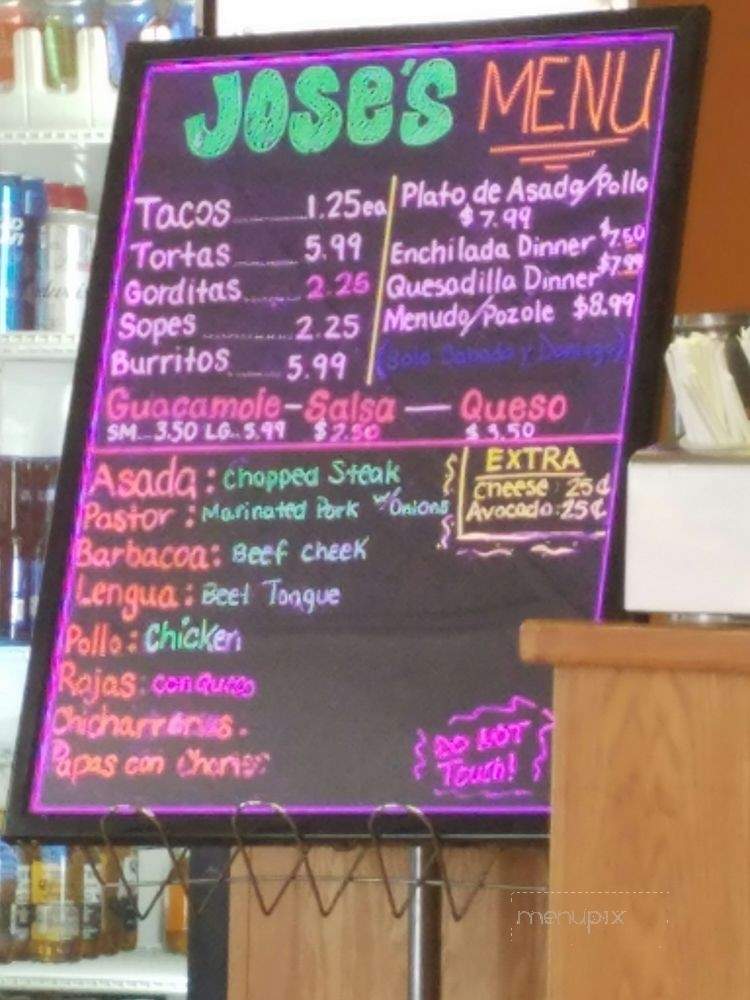 JOSE'S MENU
Tacos 1.25ea
Tortas 5.99
Gorditas 2.25
Sopes 2.25
Burritos 5.99
Plato de Asada/Pollo
$7.99
Enchilada Dinner $7.50
Quesadilla Dinner $7.99
Menudo/Pozole $8.99
(Solo Sabado y Domingo)
Guacamole - Salsa - Queso
SM 3.50 LG 5.99 $2.50 $3.50
Asada: Chopped Steak
Pastor: Marinated Pork w/ Onions
Barbacoa: Beef cheek
Lengua: Beef Tongue
Pollo: Chicken
Rajas con Queso
Chicharrones.
Papas con Chorizo
EXTRA
cheese 25¢
Avocado 25¢
DO NOT
Touch!
menupix